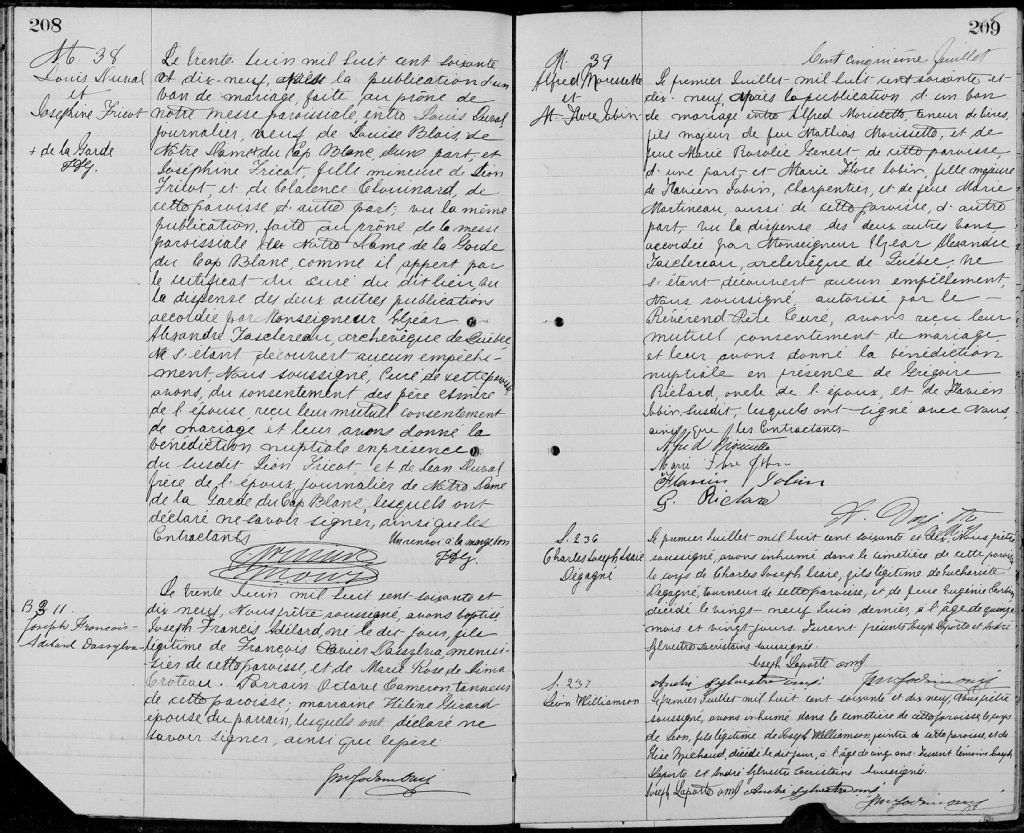 208
M 38
Louis Duval
et
Josephine Tricot
+ de la Garde
Le trente Juin mil huit cent soixante
et dix-neuf, après la publication d'un
ban de mariage, faite au prône de
notre messe paroissiale, entre Louis Duval,
journalier, veuf de Louise Blais de
Notre Dame + du Cap Blanc, d'une part, et
Joséphine Tricot, fille mineure de Léon
Tricot et de Clarence Chouinard, de
cette paroisse d'autre part; vu la même
publication, faite au prône de la messe
paroissiale de Notre Dame de la Garde
du Cap Blanc, comme il appert par
le certificat du curé du dit lieu, vu
la dispense des deux autres publications
accordée par Monseigneur Elzéar
Alexandre Taschereau, archevêque de Québec,
Ne s'étant découvert aucun empêche-
ment, Nous soussigné, Curé de cette paroisse
avons, du consentement des père et mère
de l'épouse, reçu leur mutuel consentement
de mariage et leur avons donné la
bénédiction nuptiale en présence
du susdit Léon Tricot, et de Jean Duval
frère de l'époux, journalier de Notre Dame
de la Garde du Cap Blanc, lesquels ont
déclaré ne savoir signer, ainsi que les
Contractants Un renvoi à la marge bon
B 311
Joseph Francois
Adélard Dassylva
Le trente Juin mil huit cent soixante et
dix neuf, Nous prêtre soussigné, avons baptisé
Joseph Francis Adélard, né le dit jour, fils
légitime de François Xavier Dassylva, menui-
sier de cette paroisse, et de Marie Rose de Lima
Croteau. Parrain Octave Cameron tanneur
de cette paroisse; marraine Hélène Girard
épouse du parrain, lesquels ont déclaré ne
savoir signer, ainsi que le père
209
Cent cinquième feuillet
M. 39
Alfred Morissette
et
M. Flore Jobin
Le premier Juillet mil huit cent soixante et
dix neuf, après la publication d'un ban
de mariage entre Alfred Morissette, teneur de livres,
fils majeur de feu Mathias Morissette, et de
feue Marie Rosalie Genest de cette paroisse,
d'une part, et Marie Flore Jobin, fille majeure
de Flavien Jobin, Charpentier, et de feue Marie
Martineau, aussi de cette paroisse, d'autre
part, vu la dispense des deux autres bans
accordée par Monseigneur Elzéar Alexandre
Taschereau, archevêque de Québec, Ne
s'étant découvert aucun empêchement,
Nous soussigné, autorisé par le
Révérend Père Curé, avons reçu leur
mutuel consentement de mariage
et leur avons donné la bénédiction
nuptiale en présence de Grégoire
Richard, oncle de l'époux, et de Flavien
Jobin susdit, lesquels ont signé avec Nous,
ainsi que les Contractants
Marie Flore Jobin
Flavien Jobin
S. 236
Charles Joseph Isaïe
Dégagné
Le premier Juillet mil huit cent soixante et dix, Nous prêtre
soussigné, avons inhumé dans le cimetière de cette paroisse
le corps de Charles Joseph Isaïe, fils légitime de Euchariste
Dégagné, tourneur de cette paroisse, et de feue Eugénie
décédé le vingt-neuf Juin dernier, à l'âge de quinze
mois et vingt jours. Furent présents Joseph Laporte et André
Sylvestre sacristains soussignés.
Joseph Laporte
André Sylvestre
S. 237
Léon Williamson
Le premier Juillet mil huit cent soixante et dix neuf, Nous prêtre
soussigné, avons inhumé dans le cimetière de cette paroisse, le corps
de Léon, fils légitime de Joseph Williamson, peintre de cette paroisse, et de
Elise Michaud, décédé le dit jour, à l'âge de cinq ans. Furent témoins Joseph
Laporte et André Sylvestre sacristains soussignés.
Joseph Laporte André Sylvestre